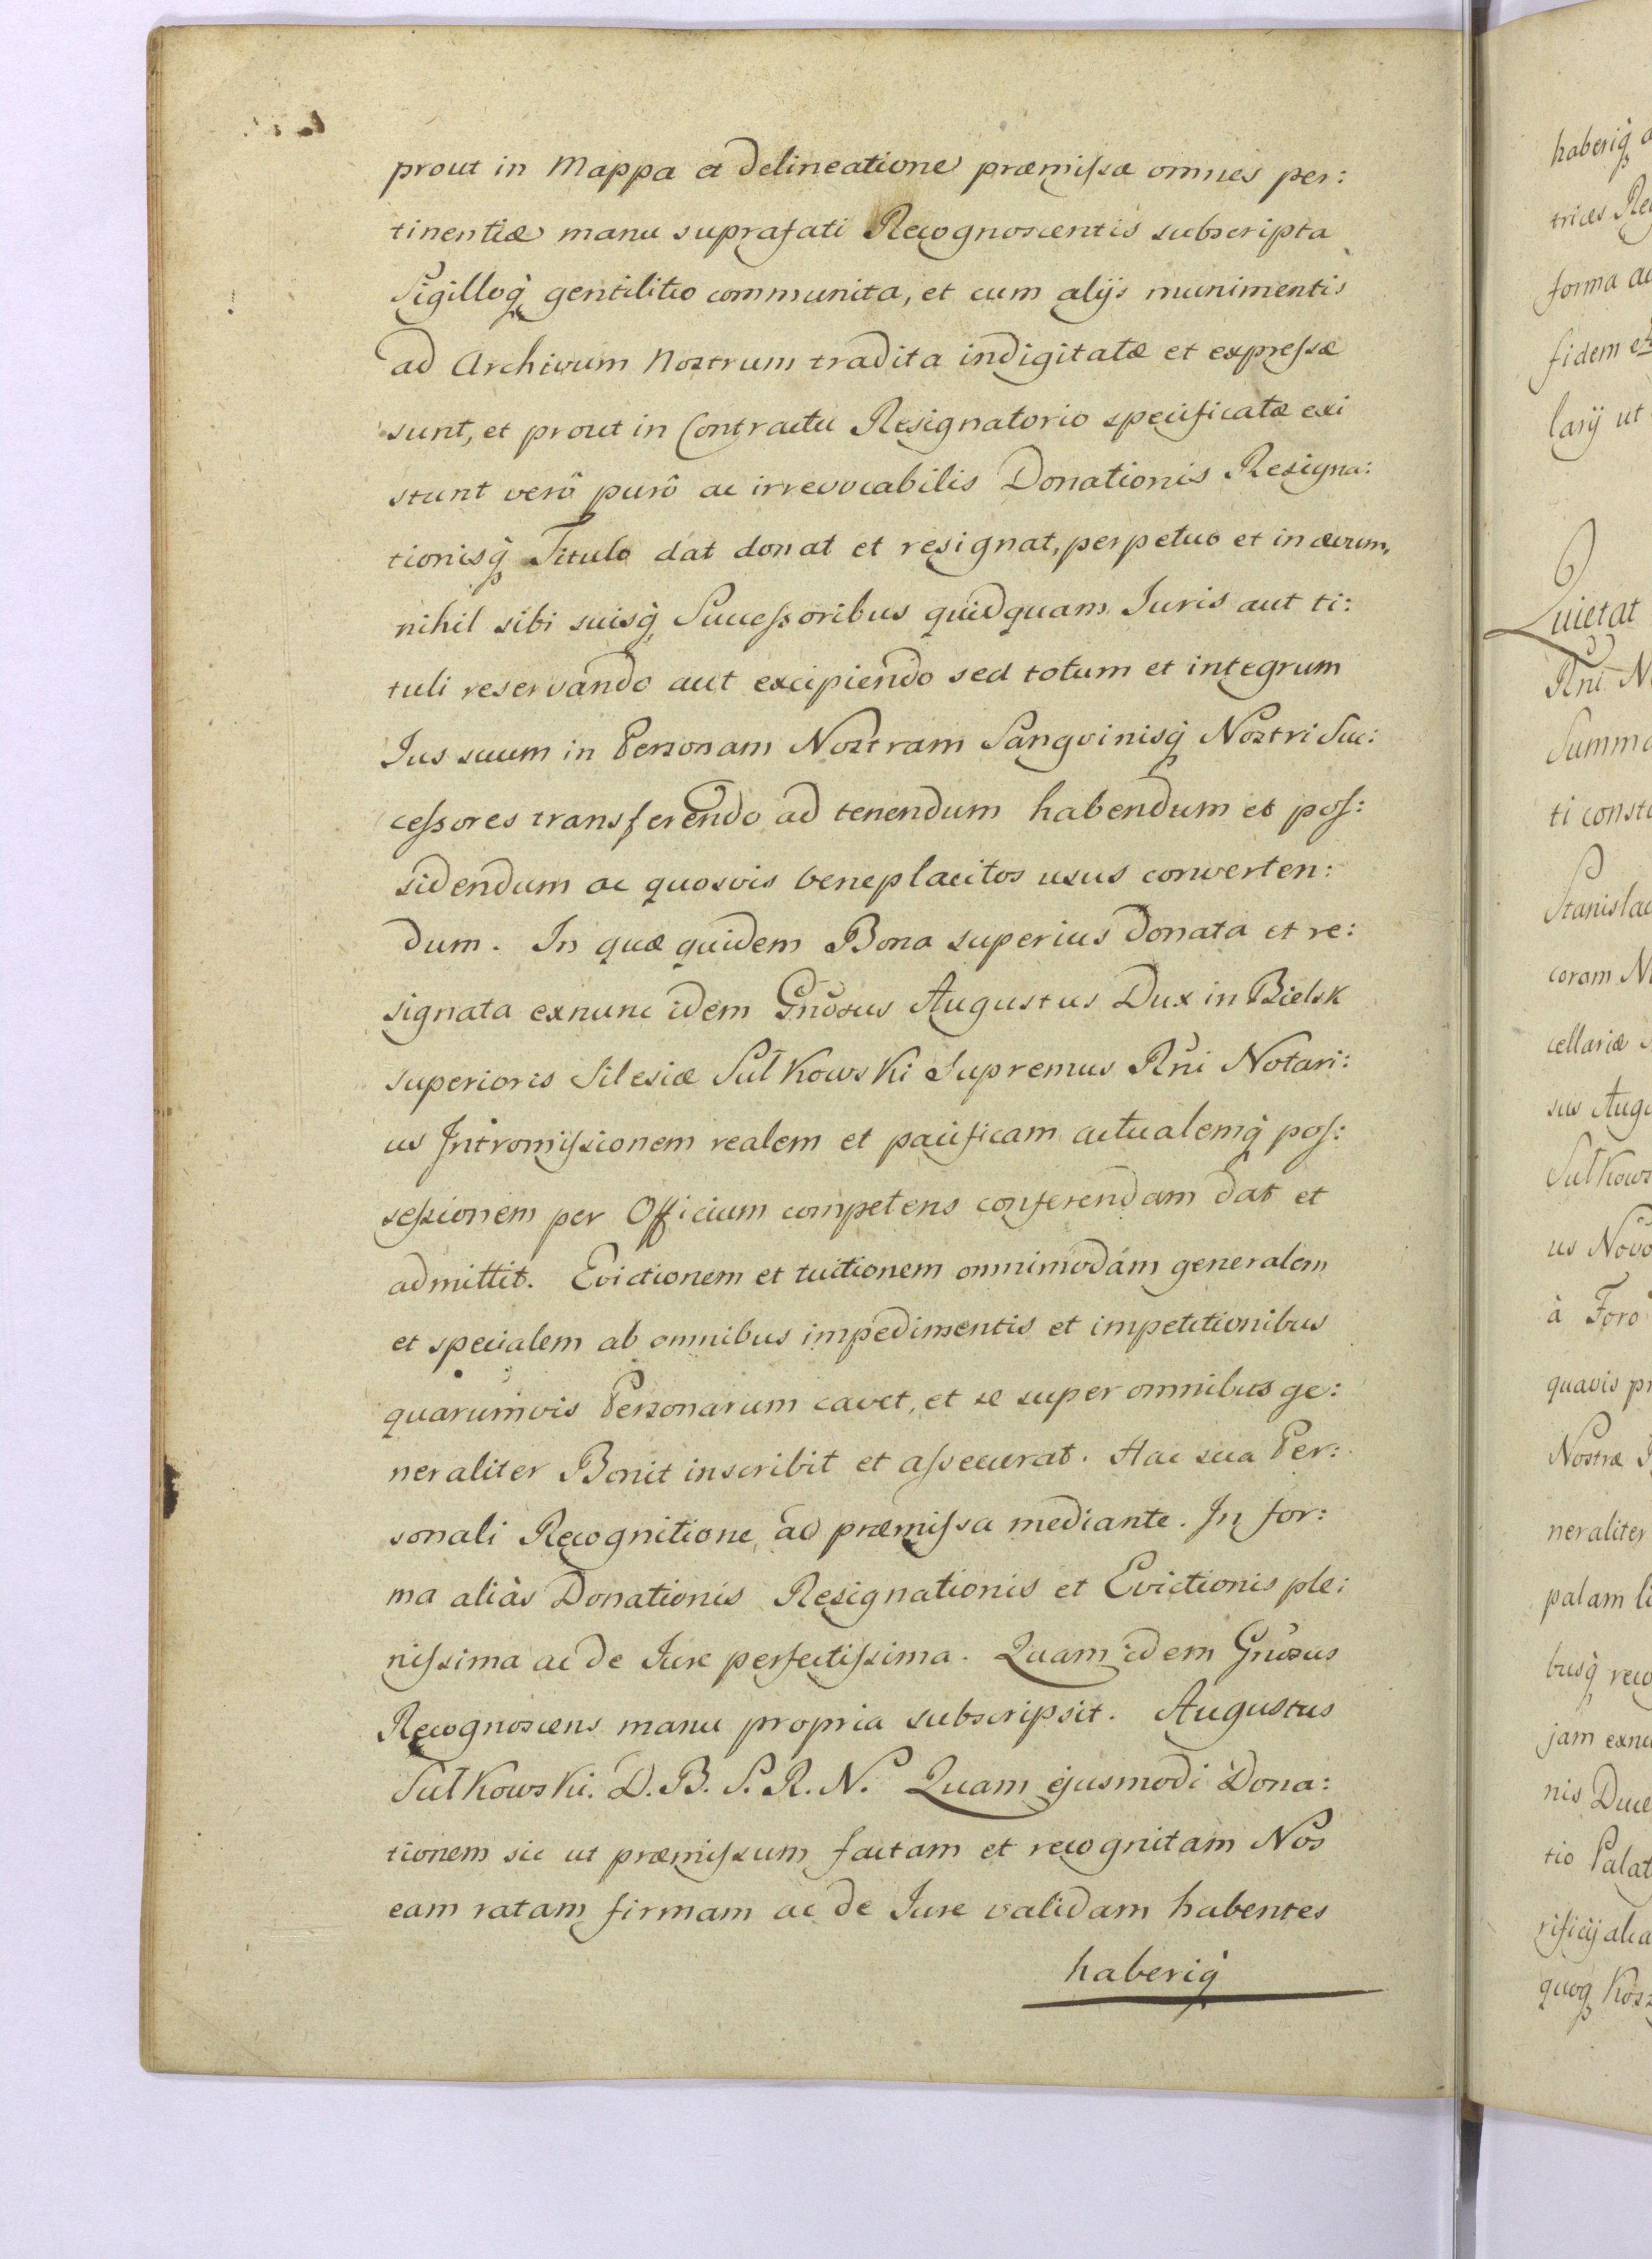 prout in Mappa et Delineatione præmiſsæ omnes per:
tinentiæ manu suprafati Recognoscentis subscripta
Sigilloq̀ gentilitio communita, et cum alijs munimentis
ad Archivum Nostrum tradita indigitatæ et expreſsæ
sunt, et prout in Contractu Resignatorio specificatæ exi
stunt verô purô ac irrevocabilis Donationis Resigna:
tionisq̀ Titulo dat donat et resignat, perpetuo et in ævum,
nihil sibi suisq̀ Succeſsoribus quidquam Iuris aut ti:
tuli reservando aut excipiendo sed totum et integrum
Ius suum in Personam Nostram Sangvinisq̀ Nostri Suc:
ceſsores transferendo ad tenendum habendum et poſ:
sidendum ac quosvis beneplacitos usus converten:
dum. In quæ quidem Bona superius Donata et re:
signata exnunc idem Gnosus Augustus Dux in Bielsk
superioris Silesiæ Sułkowski Supremus Rni Notari:
us Intromiſsionem realem et pacificam actualemq̀ poſ:
seſsionem per Officium competens conferendam dat et
admittit. Evictionem et tuitionem omnimodam generalem
et specialem ab omnibus impedimentis et impetitionibus
quarumvis Personarum cavet, et se super omnibus ge:
neraliter Bonit inscribit et aſsecurat. Hac sua Per:
sonali Recognitione ad præmiſsa mediante. In for:
ma aliàs Donationis Resignationis et Evictionis ple:
niſsima ac de Iure perfectiſsima. Quam idem Gnosus
Recognoscens manu propria subscripsit. Augustus
Sułkowski. D. B. S. R. N. Quam ejusmodi Dona:
tionem sic ut præmiſsum factam et recognitam Nos
eam ratam firmam ac de Iure validam habentes
haberiq̀
haberiq̀
trices
forma ac
fidem
larij ut
Quietat
Rni
Summa
ti
Stanislaw
coram
cellariæ
sus
Sułkows
us
à Foro
quavis
Nostræ
neraliter
palam
busq̀
jam
nis
tio Palat
rificij
quoq̀